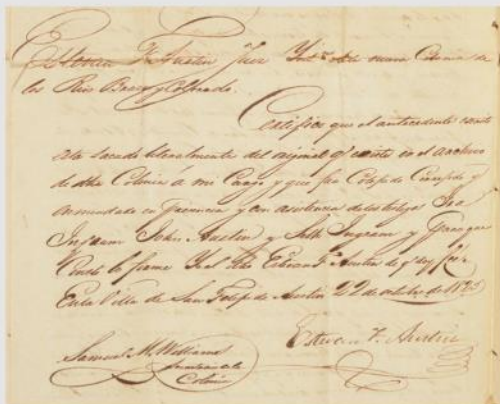 Estevan F. Austin Juez de la nueva Colonia de
los Rios Brazos y Colorado.
Certifico que el antecedente
esta sacado literalmente del original qe existe en el archivo
de dha Colonia á mi Cargo y que fue Corregido y
enmendado en presencia y con asistencia de los testigos
Ingram John Austin y Seth Ingram y para que
Conste lo firme Yo el dho Estevan F. Austin de qe doy fee.
En la Villa de San Felipe de Austin 22 de octubre de 1825
Estevan F. Austin
Samuel M. Williams
Colonia